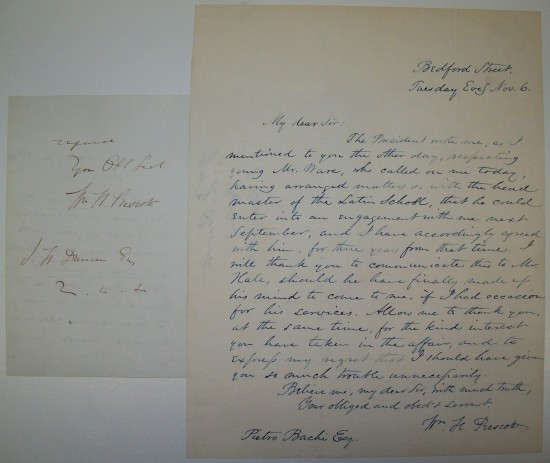 Yr Obt Svt
Wm H Prescott
Esq
Bedford Street.
Tuesday Eveg Nov. 6.
My dear Sir:
The President wrote me, as I
mentioned to you the other day, respecting
young Mr. Ware, who called on me today,
having arranged matters so with the head
master of the Latin School, that he could
enter into an engagement with me next
September, and I have accordingly agreed
with him, for three years from that time. I
will thank you to communicate this to Mr.
Hale, should he have finally made up
his mind to come to me, if I had occasion
for his services. Allow me to thank you,
at the same time, for the kind interest
you have taken in the affair, and to
express my regret that I should have given
you so much trouble unnecessarily.
Believe me, my dear Sir, with much truth,
Your obliged and obedt servant.
Wm H Prescott
Pietro Bachi Esq.